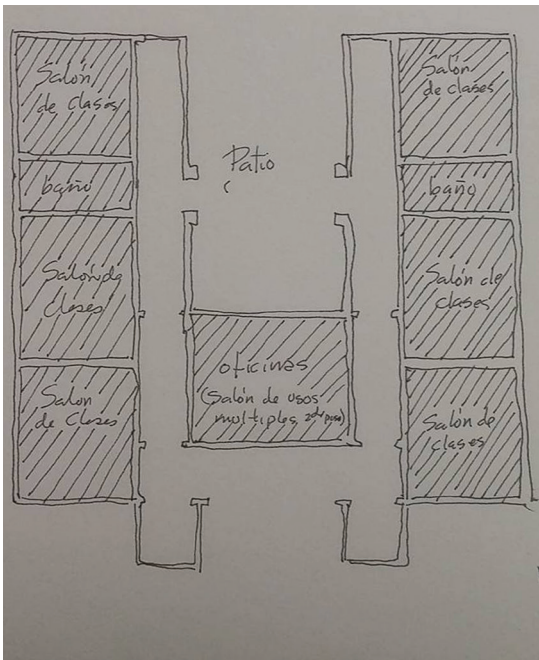 Salón
de clases
baño
Salón de
clases
Salon
de Clases
Patio
oficinas
(Salón de usos
multiples 2do piso)
Salón
de clases
baño
Salón de
clases
Salón de
clases